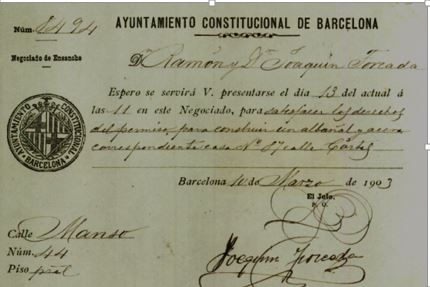 AYUNTAMIENTO CONSTITUCIONAL DE BARCELONA
Núm. 8494
Negociado de Ensanche
D. Ramón y Dn Joaquin Torcada
Espero se servirá V. presentarse el dia 13 del actual á
las 11 en este Negociado, para satisfacer los derechos
del permiso para construir un albañal y acera
correspondiente casa Nº 87 calle Cortes
AYUNTAMIENTO CONSTITUCIONAL BARCELONA
Barcelona 10 de Marzo de 1903
El Jefe,
P. O.
Calle Manso
Núm. 44
Piso pral
Joaquin Torcada